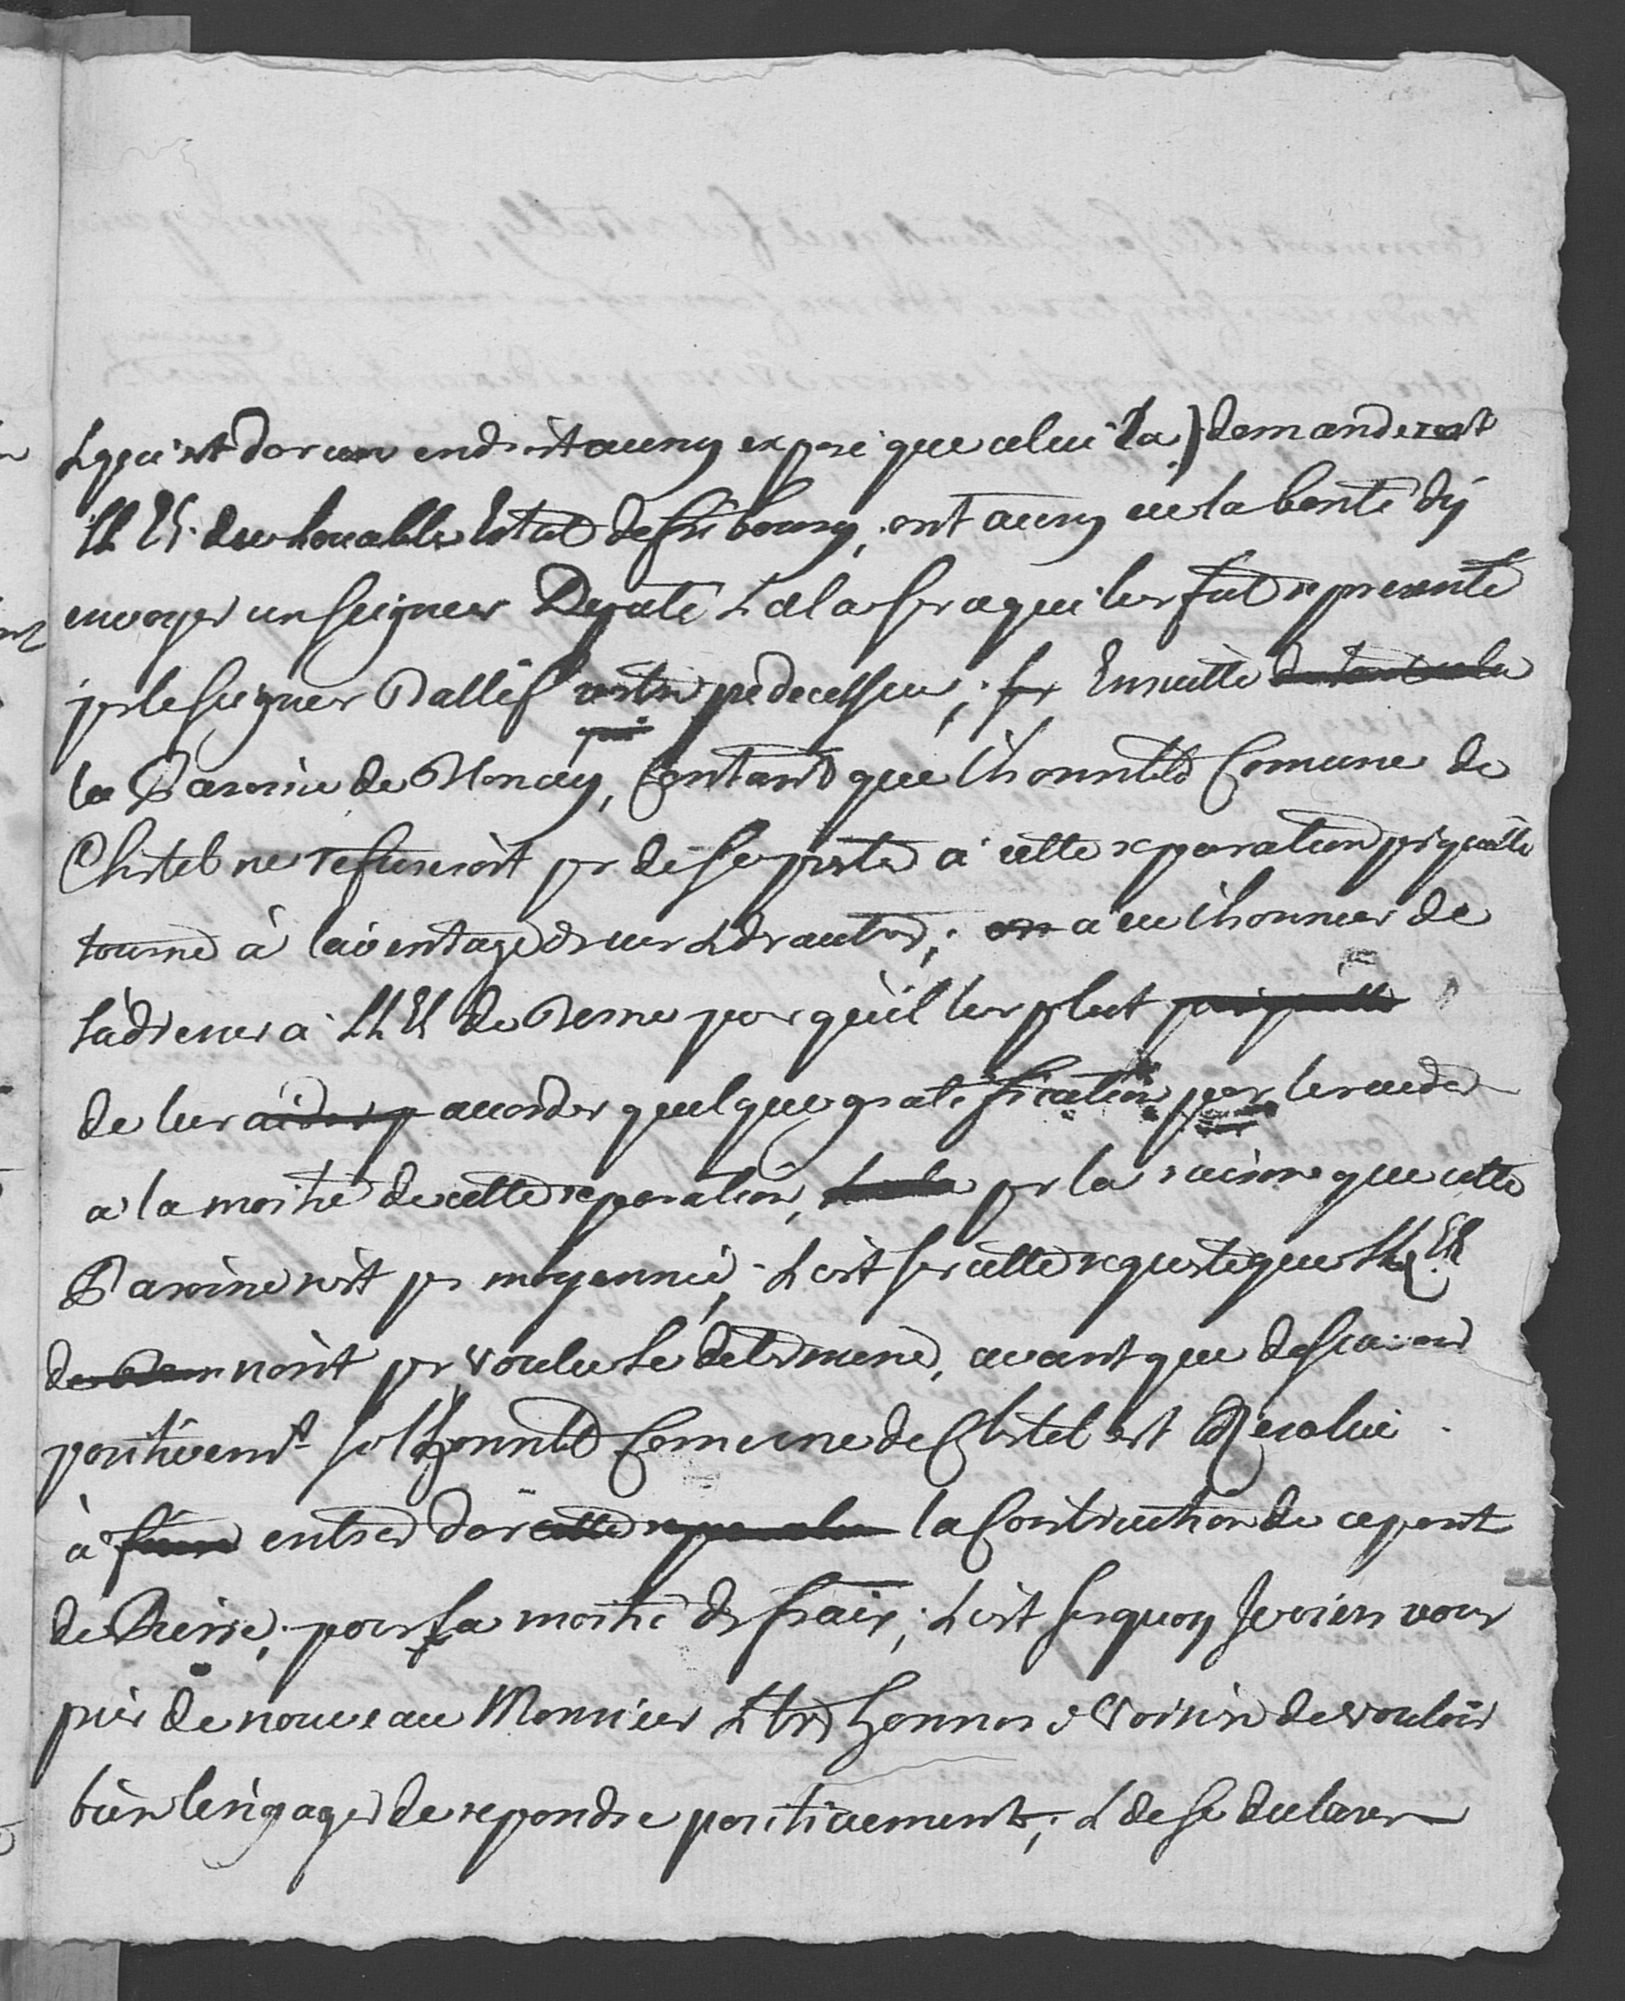 & qui est dans un endroit aussy exposé que celui la) demanderent
LL EE. du Louable Estat de fribourg, ont aussy eu la bonté dÿ
envoyer un Seigneur Deputé & cela sera qui leur fut representé
par le Seigneur Ballif vostre predecesseur, Ensuitte
la Paroisse de Blonay, Contant que lhonnble Comune de
Chastel ne refuseroit pas de se preter à cette reparation puisquelle
tourne à lavantage des uns & des autres; on a eu lhonneur de
sadresser à LL EE de Berne pour quil leur plut puisquelle
de leur aider p accorder quelque gratification pour leur aider
a la moitié de cette reparation, par la raison que cette
Paroisse nest pas moyennée, & cest sur cette requeste que LL EE
de Bern nont pas voulu se determiner, avant que de scavoir
positivemt si lhonnble Comune de Chastel est Resolüe
à faire entrer dans cette reparation la Construction de ce pont
de Pierre, pour la moitié des fraix, & cest surquoy Je viens vous
prier de nouveau Monsieur & tres honnoré Voisin de vouloir
bien lengager de repondre positivement, & de se declarer